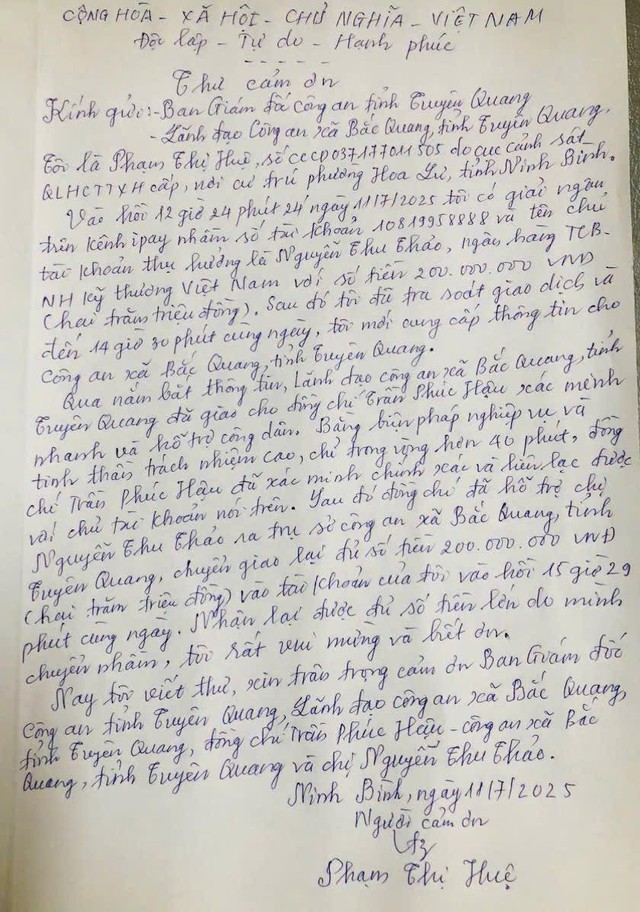 CỘNG HÒA - XÃ HỘI - CHỦ NGHĨA - VIỆT NAM
Độc lập - Tự do - Hạnh phúc
- - - - -
Thư cảm ơn
Kính gửi: - Ban Giám đốc Công an tỉnh Tuyên Quang
- Lãnh đạo Công an xã Bắc Quang, tỉnh Tuyên Quang.
Tôi là Phạm Thị Huệ, số CCCD 037177011505 do cục cảnh sát
QLHCTTXH cấp, nơi cư trú phường Hoa Lư, tỉnh Ninh Bình.
Vào hồi 12 giờ 24 phút 24 ngày 11/7/2025 tôi có giải ngân
trên kênh ipay nhầm số tài khoản 10819958888 và tên chủ
tài khoản thụ hưởng là Nguyễn Thu Thảo, ngân hàng TCB-
NH kỹ thương Việt Nam với số tiền 200.000.000 VNĐ
(hai trăm triệu đồng). Sau đó tôi đã tra soát giao dịch và
đến 14 giờ 30 phút cùng ngày, tôi mới cung cấp thông tin cho
công an xã Bắc Quang, tỉnh Tuyên Quang.
Qua nắm bắt thông tin, Lãnh đạo công an xã Bắc Quang, tỉnh
Tuyên Quang đã giao cho đồng chí Trần Phúc Hậu xác minh
nhanh và hỗ trợ công dân. Bằng biện pháp nghiệp vụ và
tinh thần trách nhiệm cao, chỉ trong vòng hơn 40 phút, đồng
chí Trần Phúc Hậu đã xác minh chính xác và liên lạc được
với chủ tài khoản nói trên. Sau đó đồng chí đã hỗ trợ chị
Nguyễn Thu Thảo ra trụ sở công an xã Bắc Quang, tỉnh
Tuyên Quang, chuyển giao lại đủ số tiền 200.000.000 VNĐ
(hai trăm triệu đồng) vào tài khoản của tôi vào hồi 15 giờ 29
phút cùng ngày. Nhận lại được đủ số tiền lớn do mình
chuyển nhầm, tôi rất vui mừng và biết ơn.
Nay tôi viết thư, xin trân trọng cảm ơn Ban Giám đốc
công an tỉnh Tuyên Quang, Lãnh đạo công an xã Bắc Quang,
tỉnh Tuyên Quang, đồng chí Trần Phúc Hậu - công an xã Bắc
Quang, tỉnh Tuyên Quang và chị Nguyễn Thu Thảo.
Ninh Bình, ngày 11/7/2025
Người cảm ơn
Phạm Thị Huệ